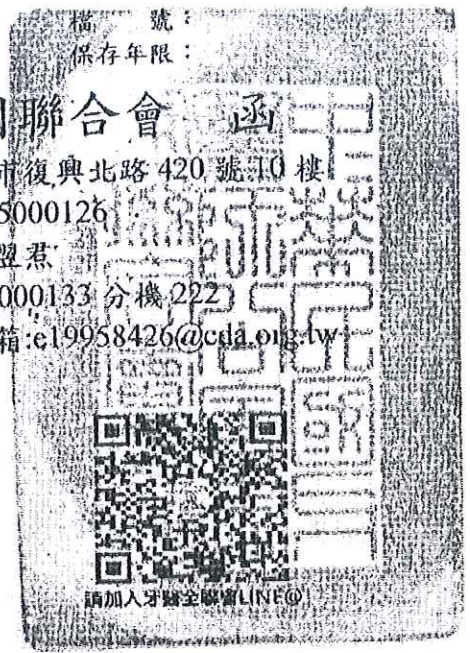 檔　　號：
保存年限：
聯合會　函
市復興北路420號10樓
5000126
000133 分機 222
箱:e19958426@cda.org.tw
請加入牙醫全聯會LINE@